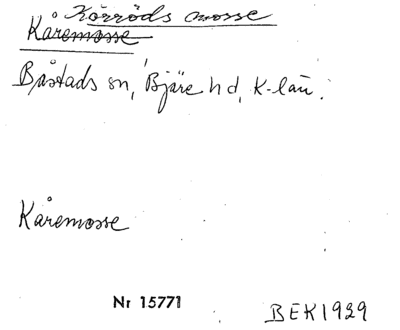 Körröds mosse
Kåremosse
Båstads sn, Bjäre hd, K-län.
Kåremosse
Nr 15771
BEK1929